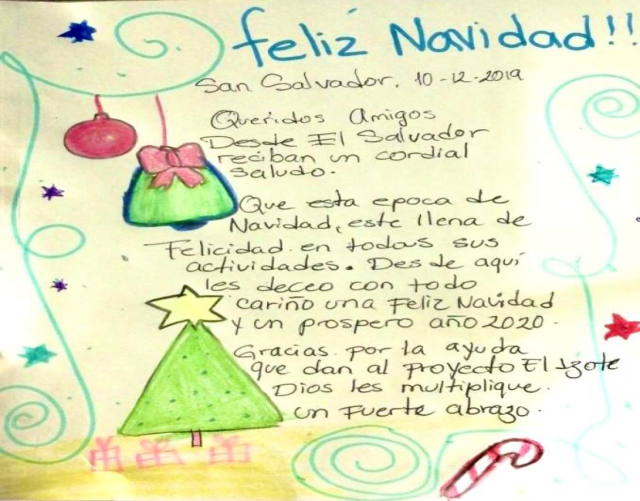 feliz Navidad!!
San Salvador, 10-12-2019
Queridos Amigos
Desde El Salvador
reciban un cordial
saludo.
Que esta epoca de
Navidad, este llena de
Felicidad en todas sus
actividades. Desde aquí
les deceo con todo
cariño una Feliz Navidad
y un prospero año 2020.
Gracias por la ayuda
que dan al Proyecto El Izote
Dios les multiplique.
un Fuerte abrazo.